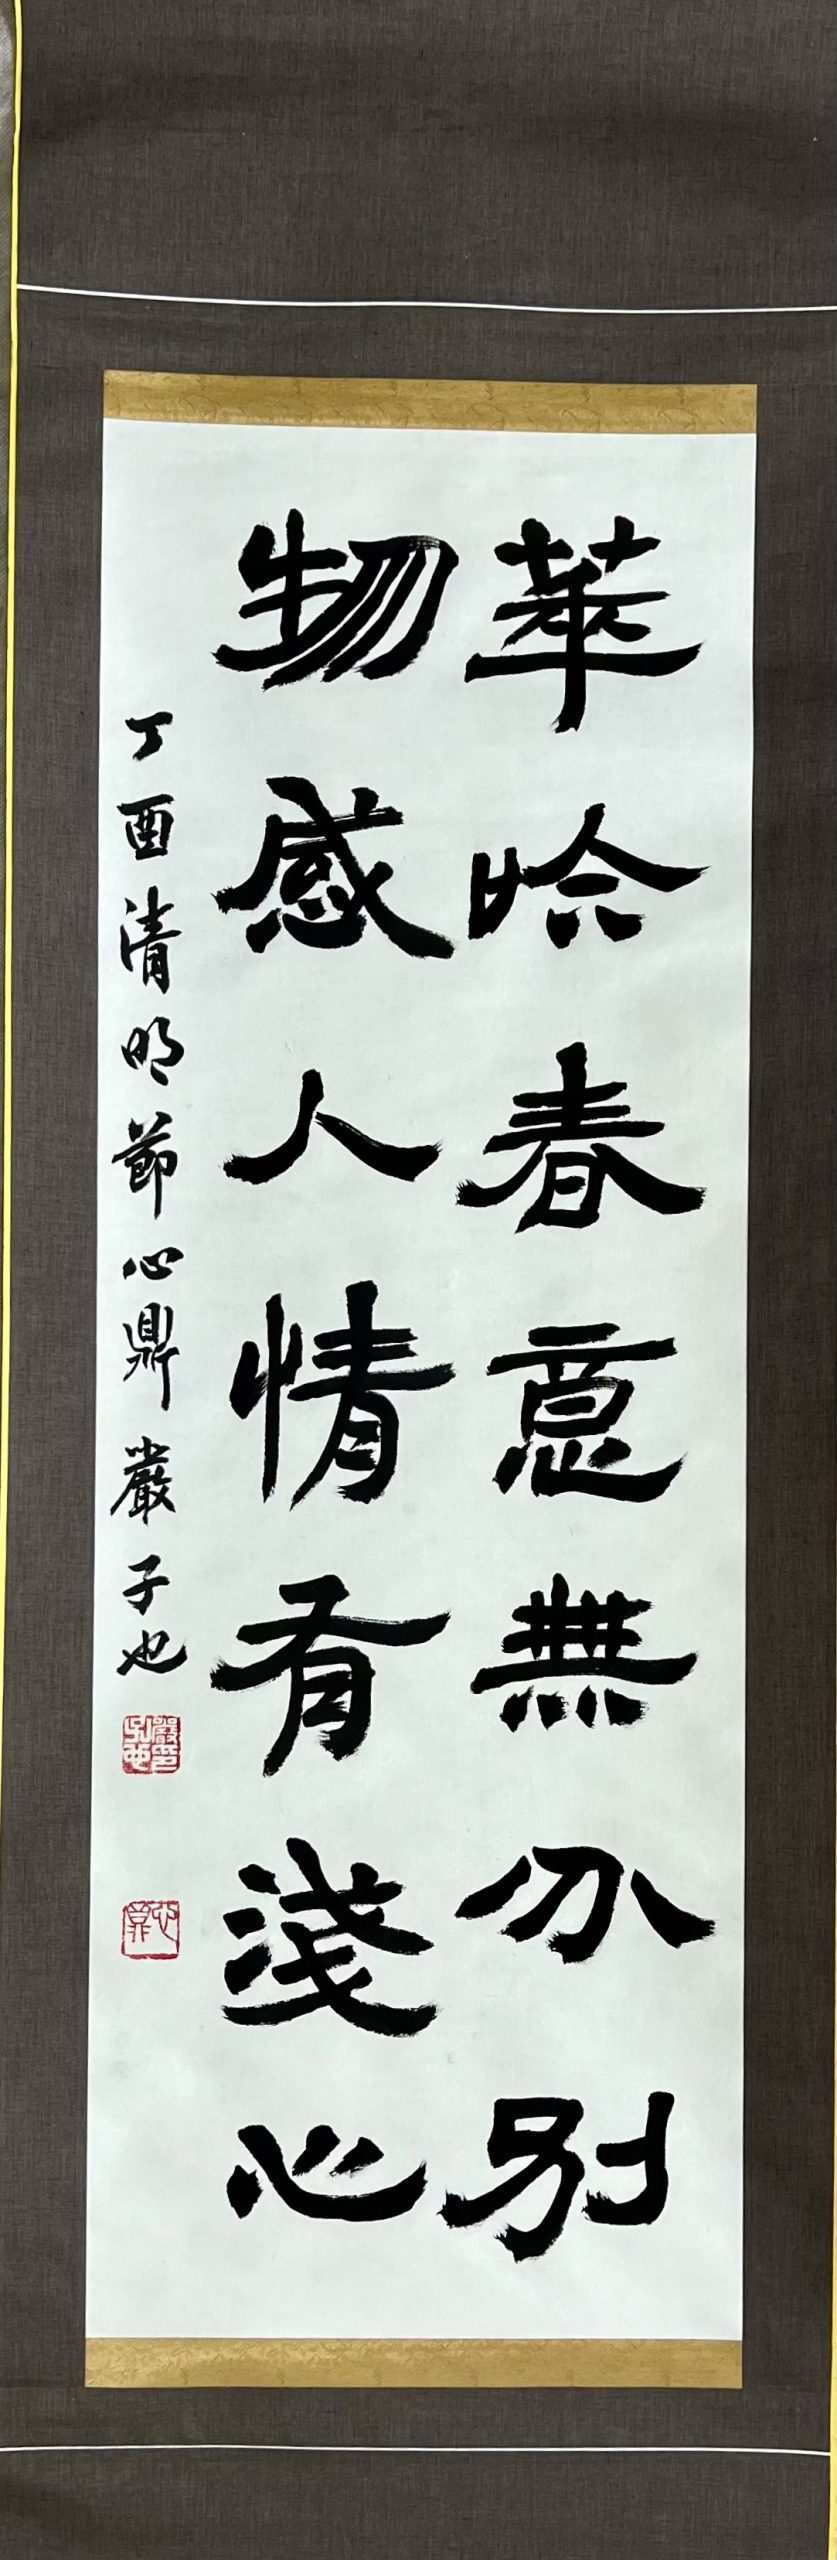 華吟春意無分別
物感人情有淺心
丁酉清明節心鼎嚴子也